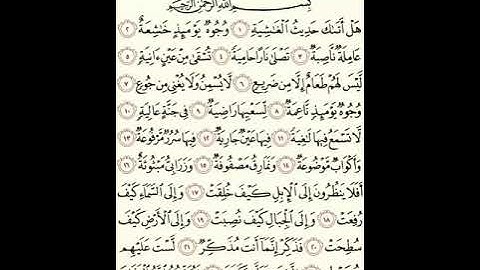 بِسْمِ اللَّهِ الرَّحْمَٰنِ الرَّحِيمِ
هَلْ أَتَىٰكَ حَدِيثُ ٱلْغَٰشِيَةِ ١ وُجُوهٌ يَوْمَئِذٍ خَٰشِعَةٌ ٢
عَامِلَةٌ نَّاصِبَةٌ ٣ تَصْلَىٰ نَارًا حَامِيَةً ٤ تُسْقَىٰ مِنْ عَيْنٍ ءَانِيَةٍ ٥
لَّيْسَ لَهُمْ طَعَامٌ إِلَّا مِن ضَرِيعٍ ٦ لَّا يُسْمِنُ وَلَا يُغْنِي مِن جُوعٍ ٧
وُجُوهٌ يَوْمَئِذٍ نَّاعِمَةٌ ٨ لِّسَعْيِهَا رَاضِيَةٌ ٩ فِي جَنَّةٍ عَالِيَةٍ ١٠
لَّا تَسْمَعُ فِيهَا لَٰغِيَةً ١١ فِيهَا عَيْنٌ جَارِيَةٌ ١٢ فِيهَا سُرُرٌ مَّرْفُوعَةٌ ١٣
وَأَكْوَابٌ مَّوْضُوعَةٌ ١٤ وَنَمَارِقُ مَصْفُوفَةٌ ١٥ وَزَرَابِيُّ مَبْثُوثَةٌ ١٦
أَفَلَا يَنظُرُونَ إِلَى ٱلْإِبِلِ كَيْفَ خُلِقَتْ ١٧ وَإِلَى ٱلسَّمَآءِ كَيْفَ
رُفِعَتْ ١٨ وَإِلَى ٱلْجِبَالِ كَيْفَ نُصِبَتْ ١٩ وَإِلَى ٱلْأَرْضِ كَيْفَ
سُطِحَتْ ٢٠ فَذَكِّرْ إِنَّمَآ أَنتَ مُذَكِّرٌ ٢١ لَّسْتَ عَلَيْهِم